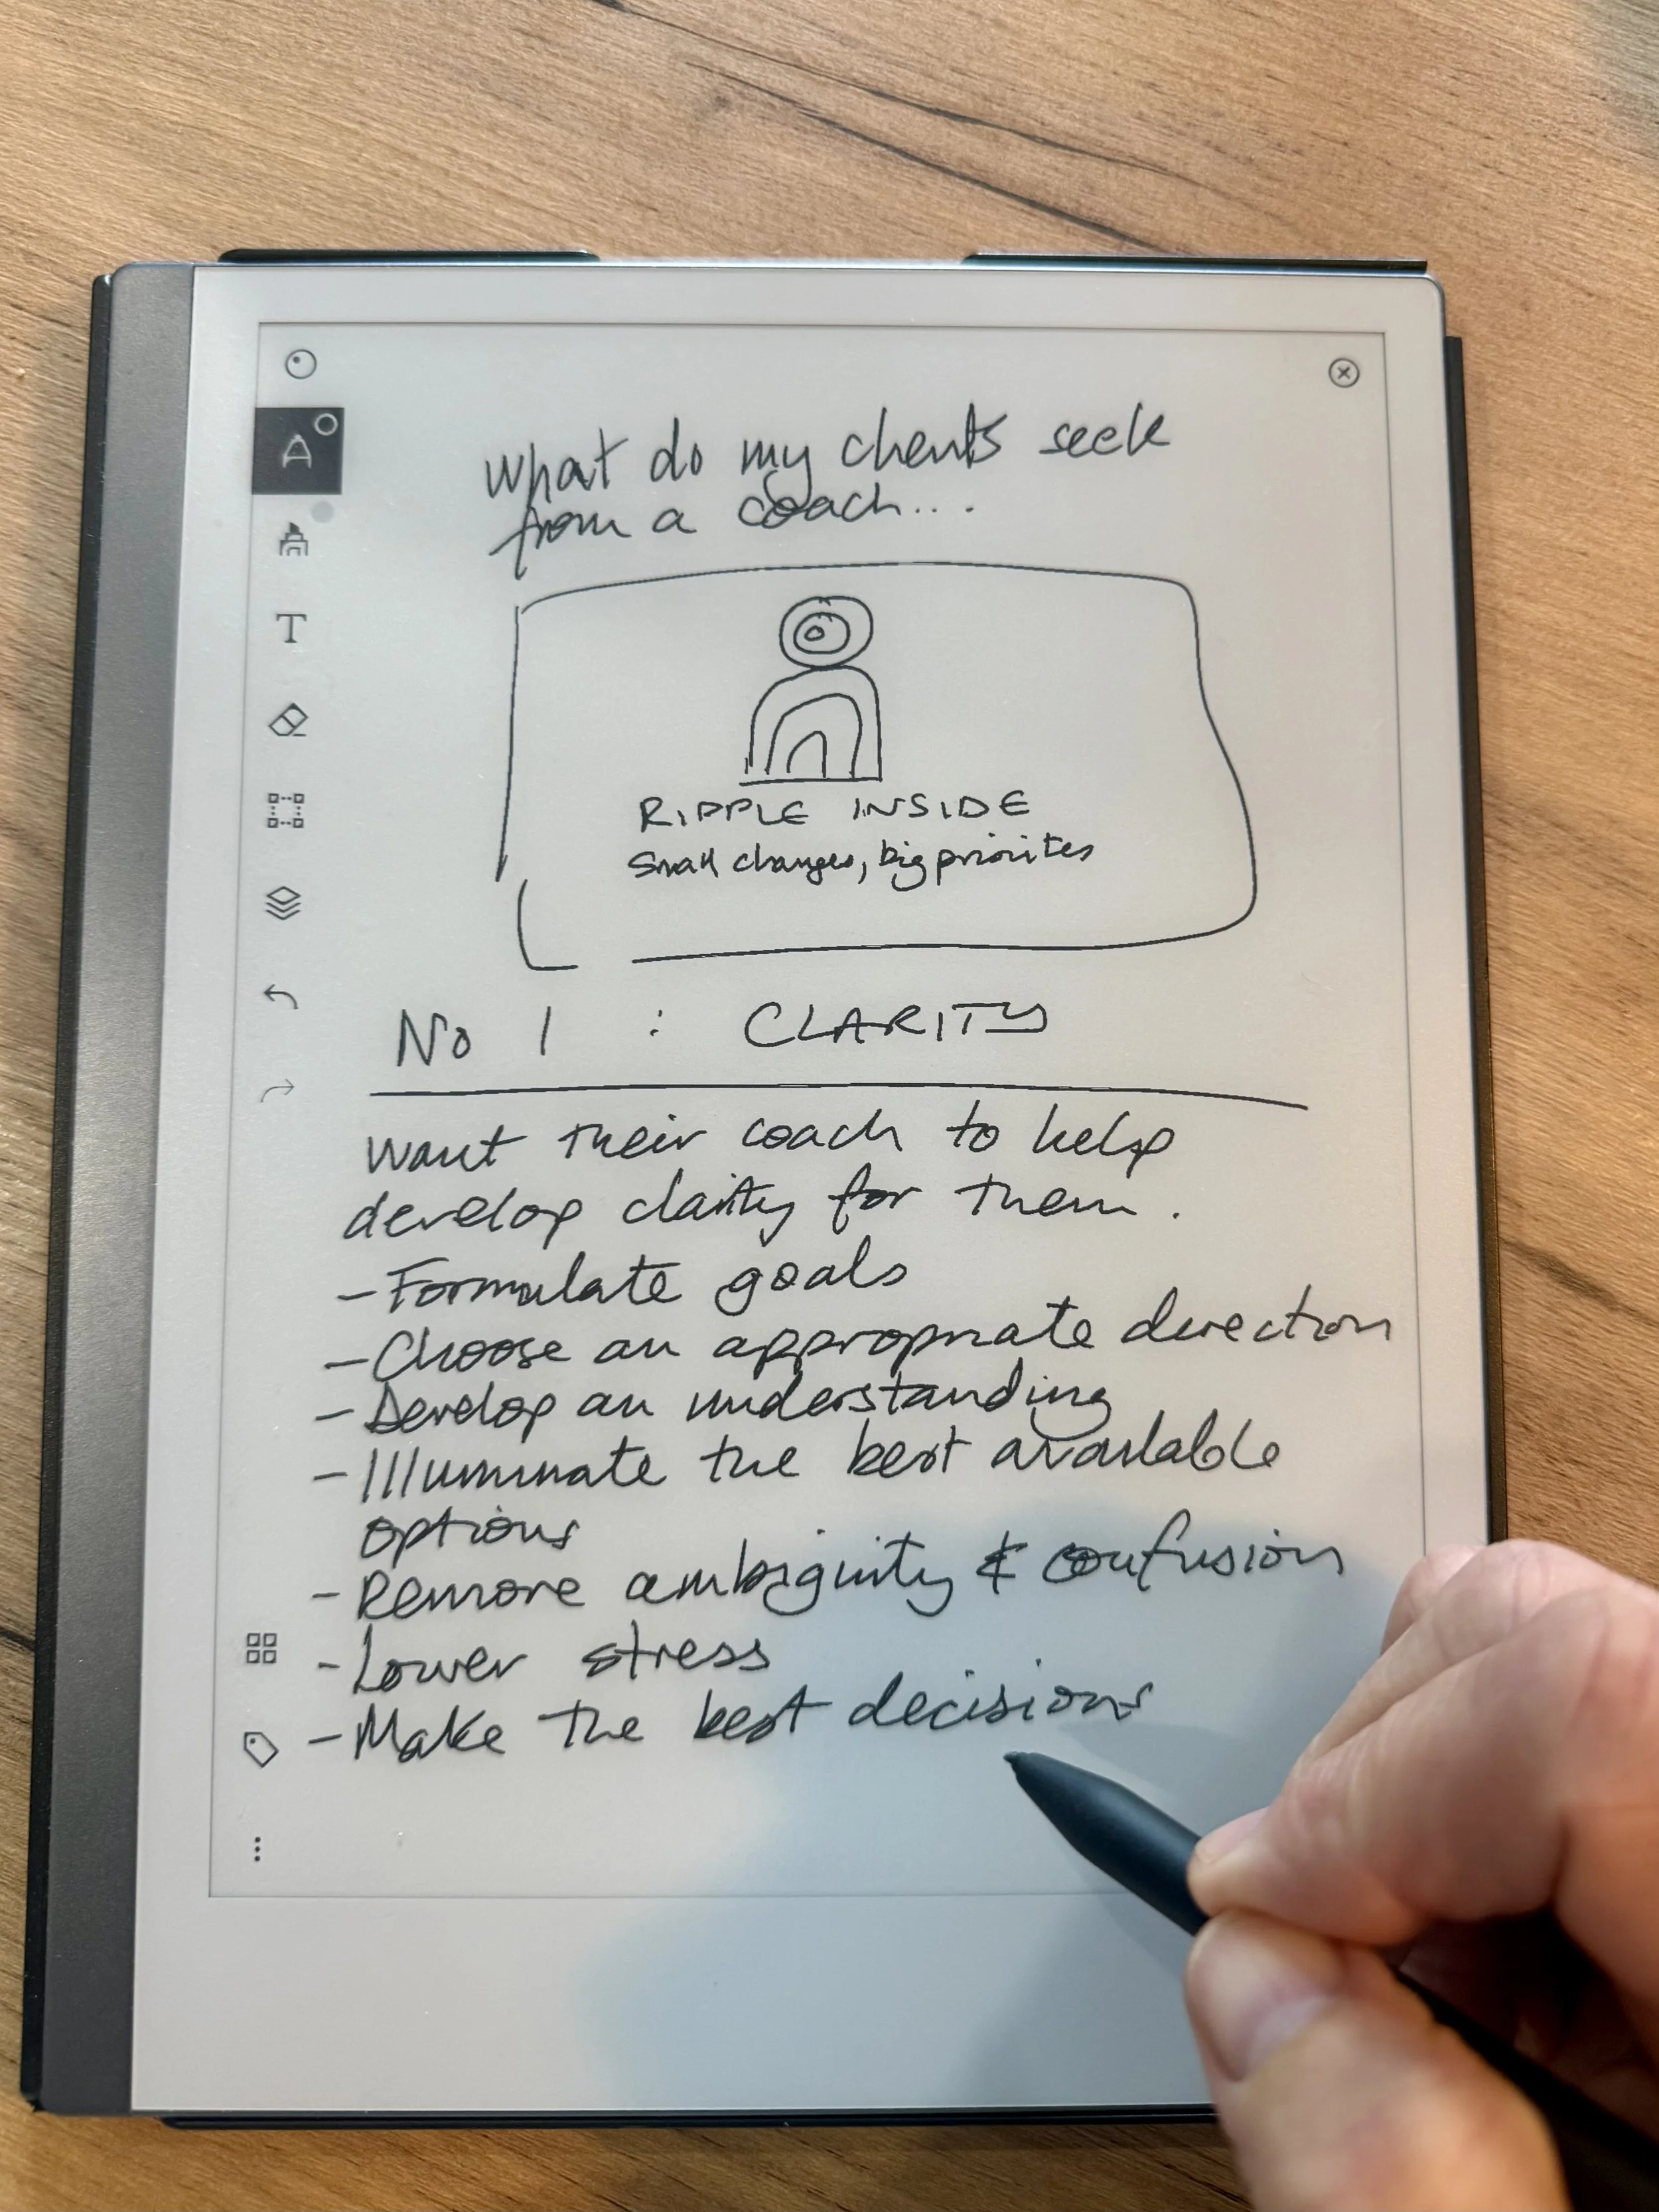 What do my clients seek
from a coach...
RIPPLE INSIDE
Small changes, big priorites
No 1 : CLARITY
Want their coach to help
develop clarity for them.
- Formulate goals
- Choose an appropriate direction
- Develop an understanding
- Illuminate the best available
options
- Remove ambiguity & confusion
- Lower stress
- Make the best decisions